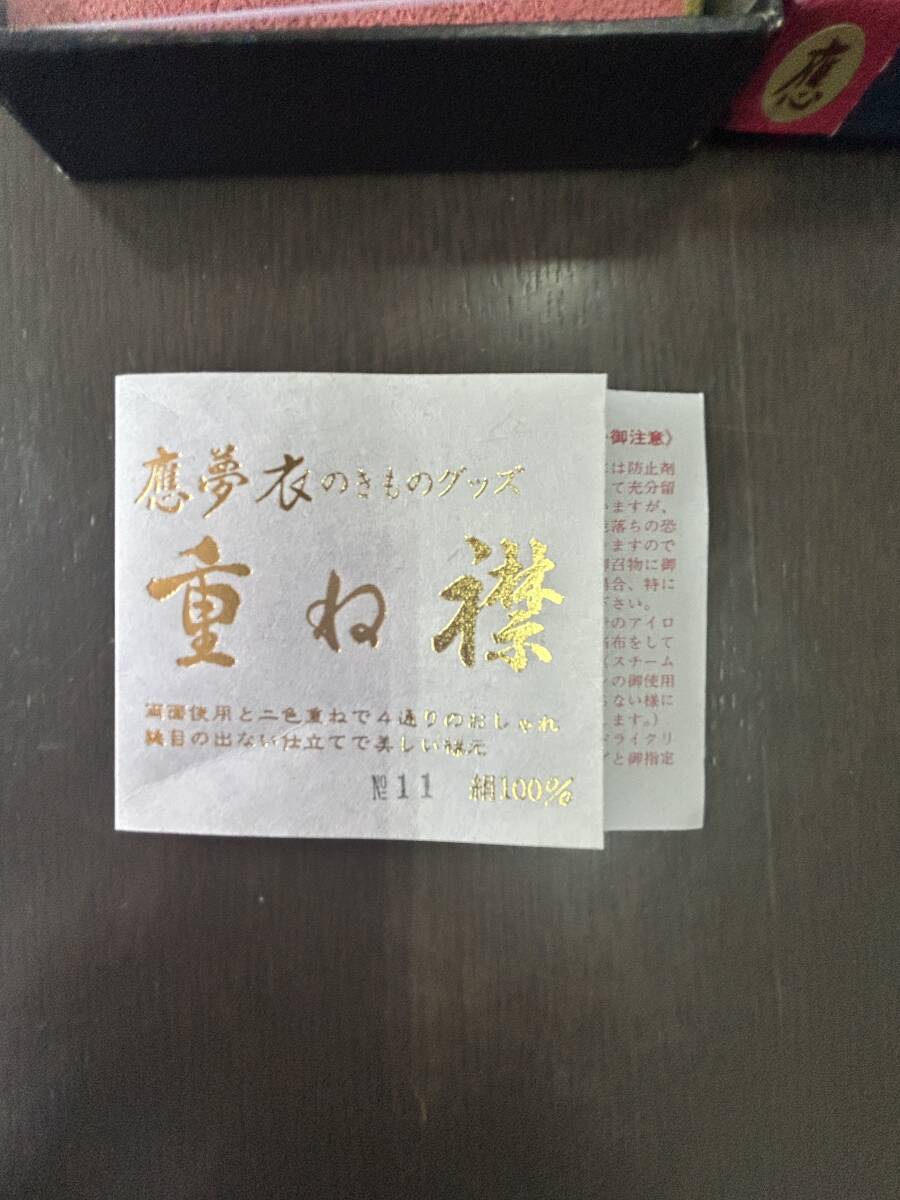 應
應夢衣のきものグッズ
重ね襟
両面使用と二色重ねで4通りのおしゃれ
縫目の出ない仕立てで美しい襟元
№11 絹100%
御注意》
は防止剤
て充分留
ますが、
落ちの恐
ますので
召物に御
合、特に
さい。
のアイロ
布をして
スチーム
の御使用
ない様に
ます。)
ドライクリ
と御指定